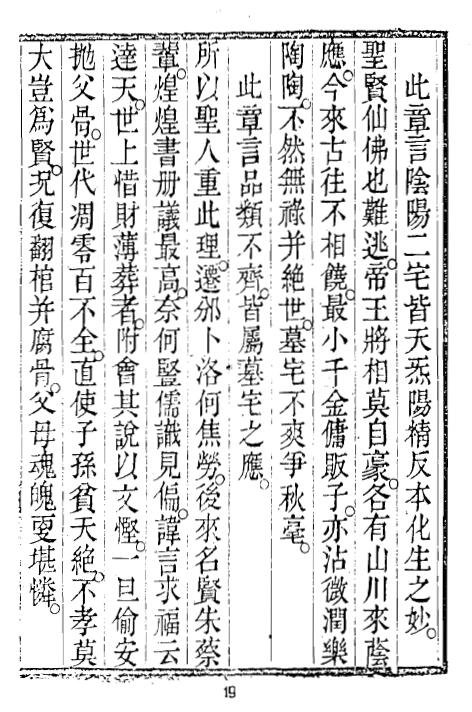 此章言陰陽二宅皆天炁陽精反本化生之妙。
聖賢仙佛也難逃。帝王將相莫自豪。各有山川來蔭
應。今來古往不相饒。最小千金傭販子。亦沾微潤樂
陶陶。不然無祿并絶世。墓宅不爽爭秋毫。
此章言品類不齊。皆屬墓宅之應。
所以聖人重此理。遷邠卜洛何焦勞。後來名賢朱蔡
輩。煌煌書册議最高。奈何豎儒識見偏。諱言求福云
達天。世上惜財薄葬者。附會其說以文慳。一旦偷安
拋父骨。世代凋零百不全。直使子孫貧夭絶。不孝莫
大豈爲賢。况復翻棺并腐骨。父母魂魄更堪憐。
19